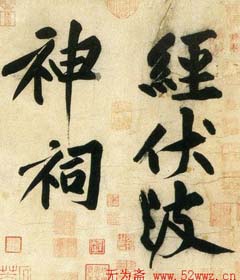 經伏波
神祠
无为斋 www.52wwz.cn